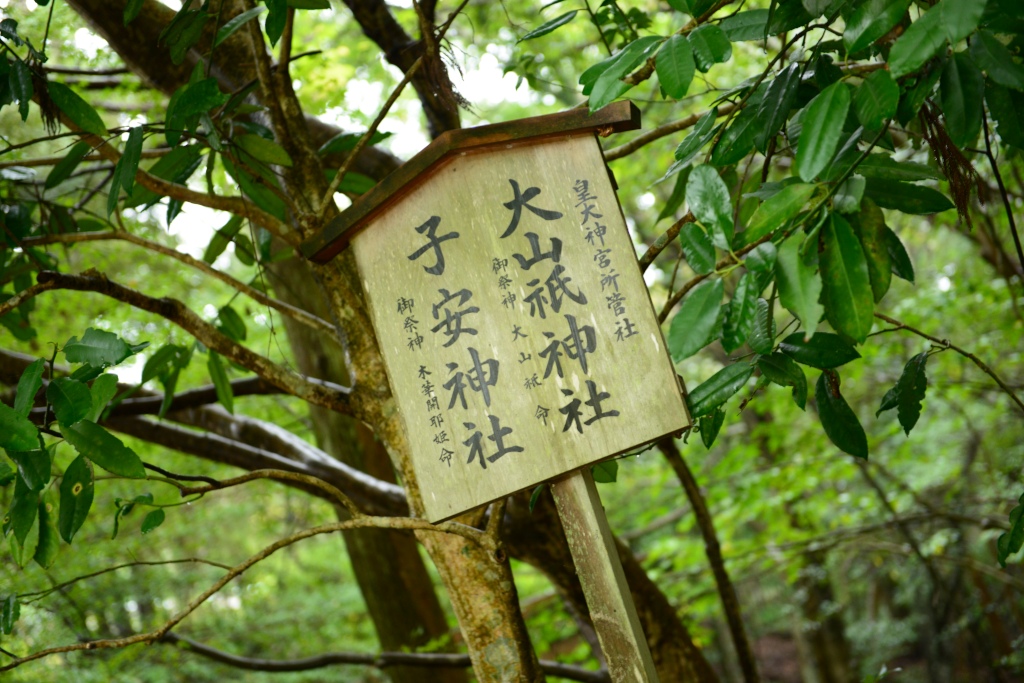 皇大神宮所管社
大山祇神社
御祭神 大山祇命
子安神社
御祭神 木華開耶姫命